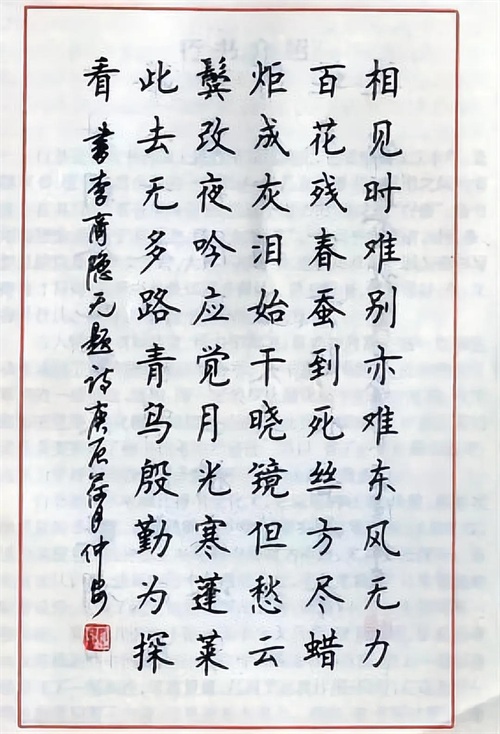 相见时难别亦难东风无力
百花残春蚕到死丝方尽蜡
炬成灰泪始干晓镜但愁云
鬓改夜吟应觉月光寒蓬莱
此去无多路青鸟殷勤为探
看 書李商隐无题诗庚辰荷月仲